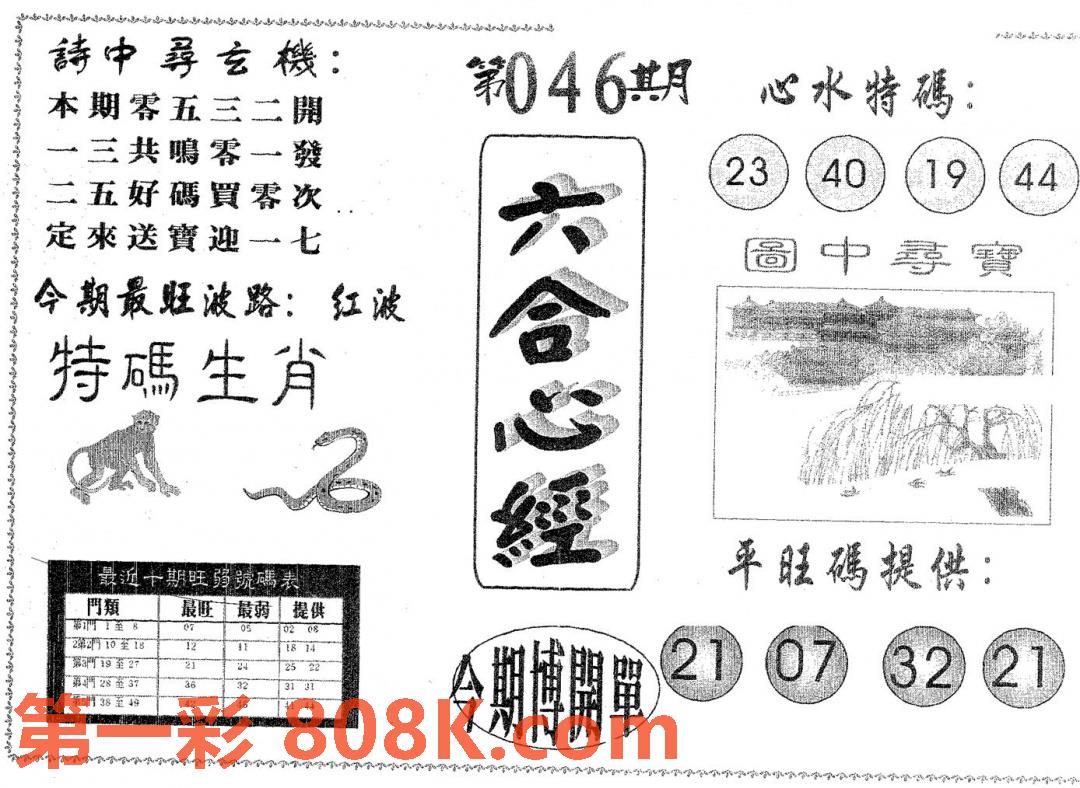 詩中尋玄機：
本期零五三二開
一三共鳴零一發
二五好碼買零次
定來送寶迎一七
今期最旺波路：红波
特碼生肖
最近十期旺弱號碼表
門類 最旺 最弱 提供
第1門 1 至 8 07 05 02 08
2第2門 10 至 18 12 11 18 14
第3門 19 至 27 21 24 25 22
第4門 28 至 37 36 32 31 31
第5門 38 至 49
第046期
六合心經
今期博開單
心水特碼：
23 40 19 44
圖中尋寶
平旺碼提供：
21 07 32 21
第一彩 808K.com